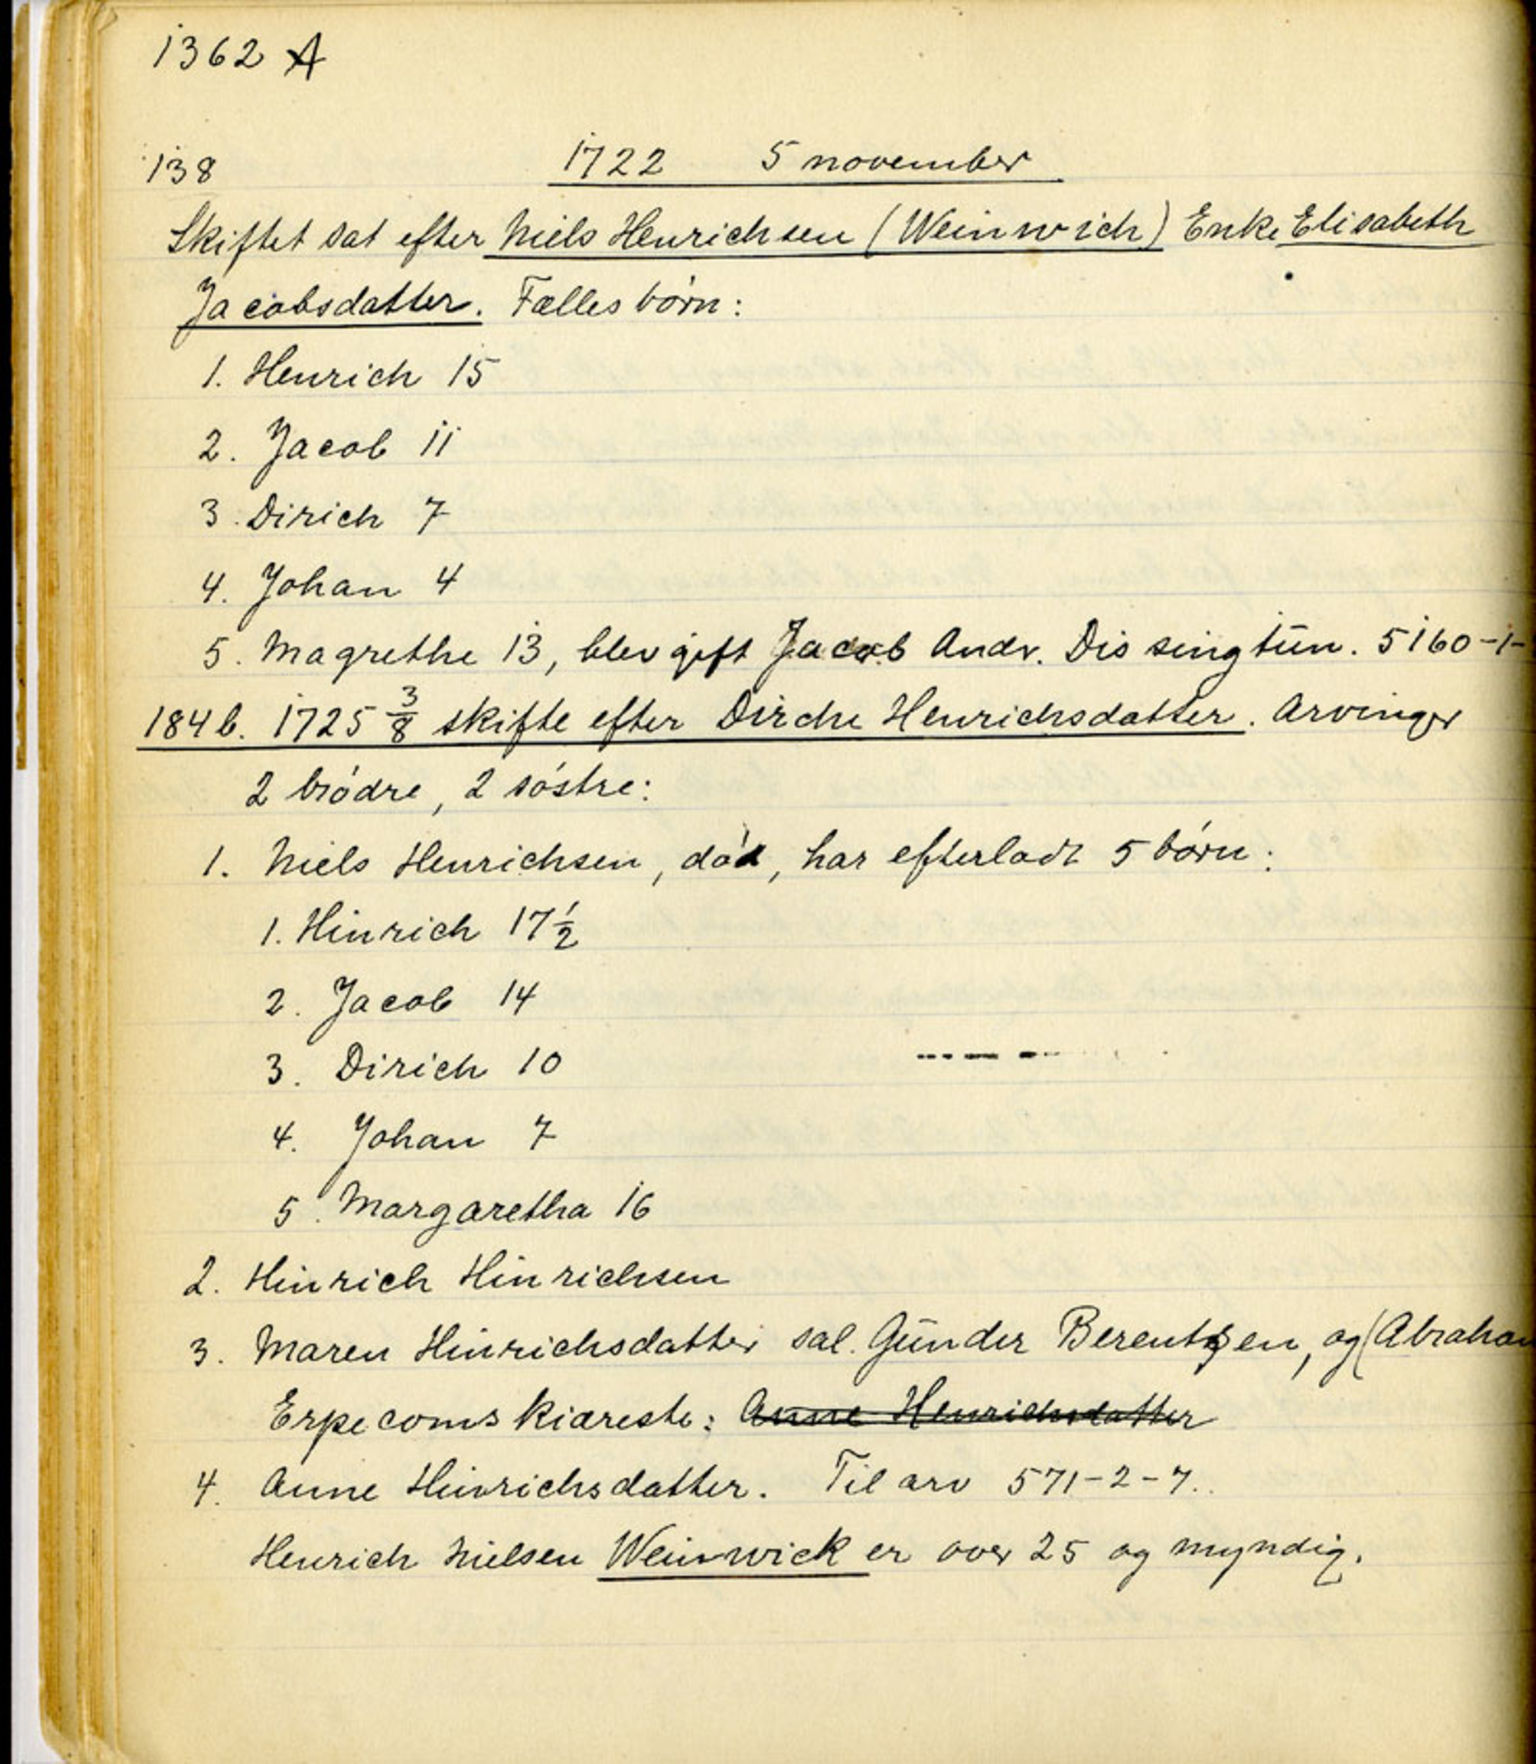 1362 A
138 1722 5 november
Skiftet sat efter Niels Henrichsen (Weinwich) Enke Elisabeth
Jacobsdatter. Fælles børn:
1. Henrich 15
2. Jacob 11
3. Dirich 7
4. Johan 4
5. Magrethe 13, blev gift Jacob Andr. Dissingtün. 5160-1-
184b. 1725 3/8 skifte efter Dirche Henrichsdatter. Arvinger
2 brødre, 2 søstre:
1. Niels Henrichsen, død, har efterladt 5 børn:
1. Hinrich 17 1/2
2. Jacob 14
3. Dirich 10
4. Johan 7
5. Margaretha 16
2. Hinrich Hinrichsen
3. Maren Hinrichsdatter sal. Günder Berentsen, og (Abraham
Erpecoms kiæreste: Anne Henrichsdatter
4. Anne Hinrichsdatter. Til arv 571-2-7.
Henrich Nielsen Weinwick er over 25 og myndig.